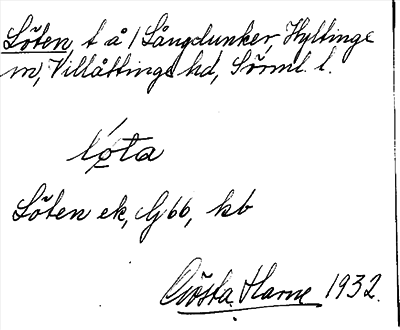 Löten, t å 1 Långdunker, Hyltinge
m, Villåttinge hd, Sörml. l.
lǫ́ta
Löten ek, Gbb, kb
Gösta Harne 1932.